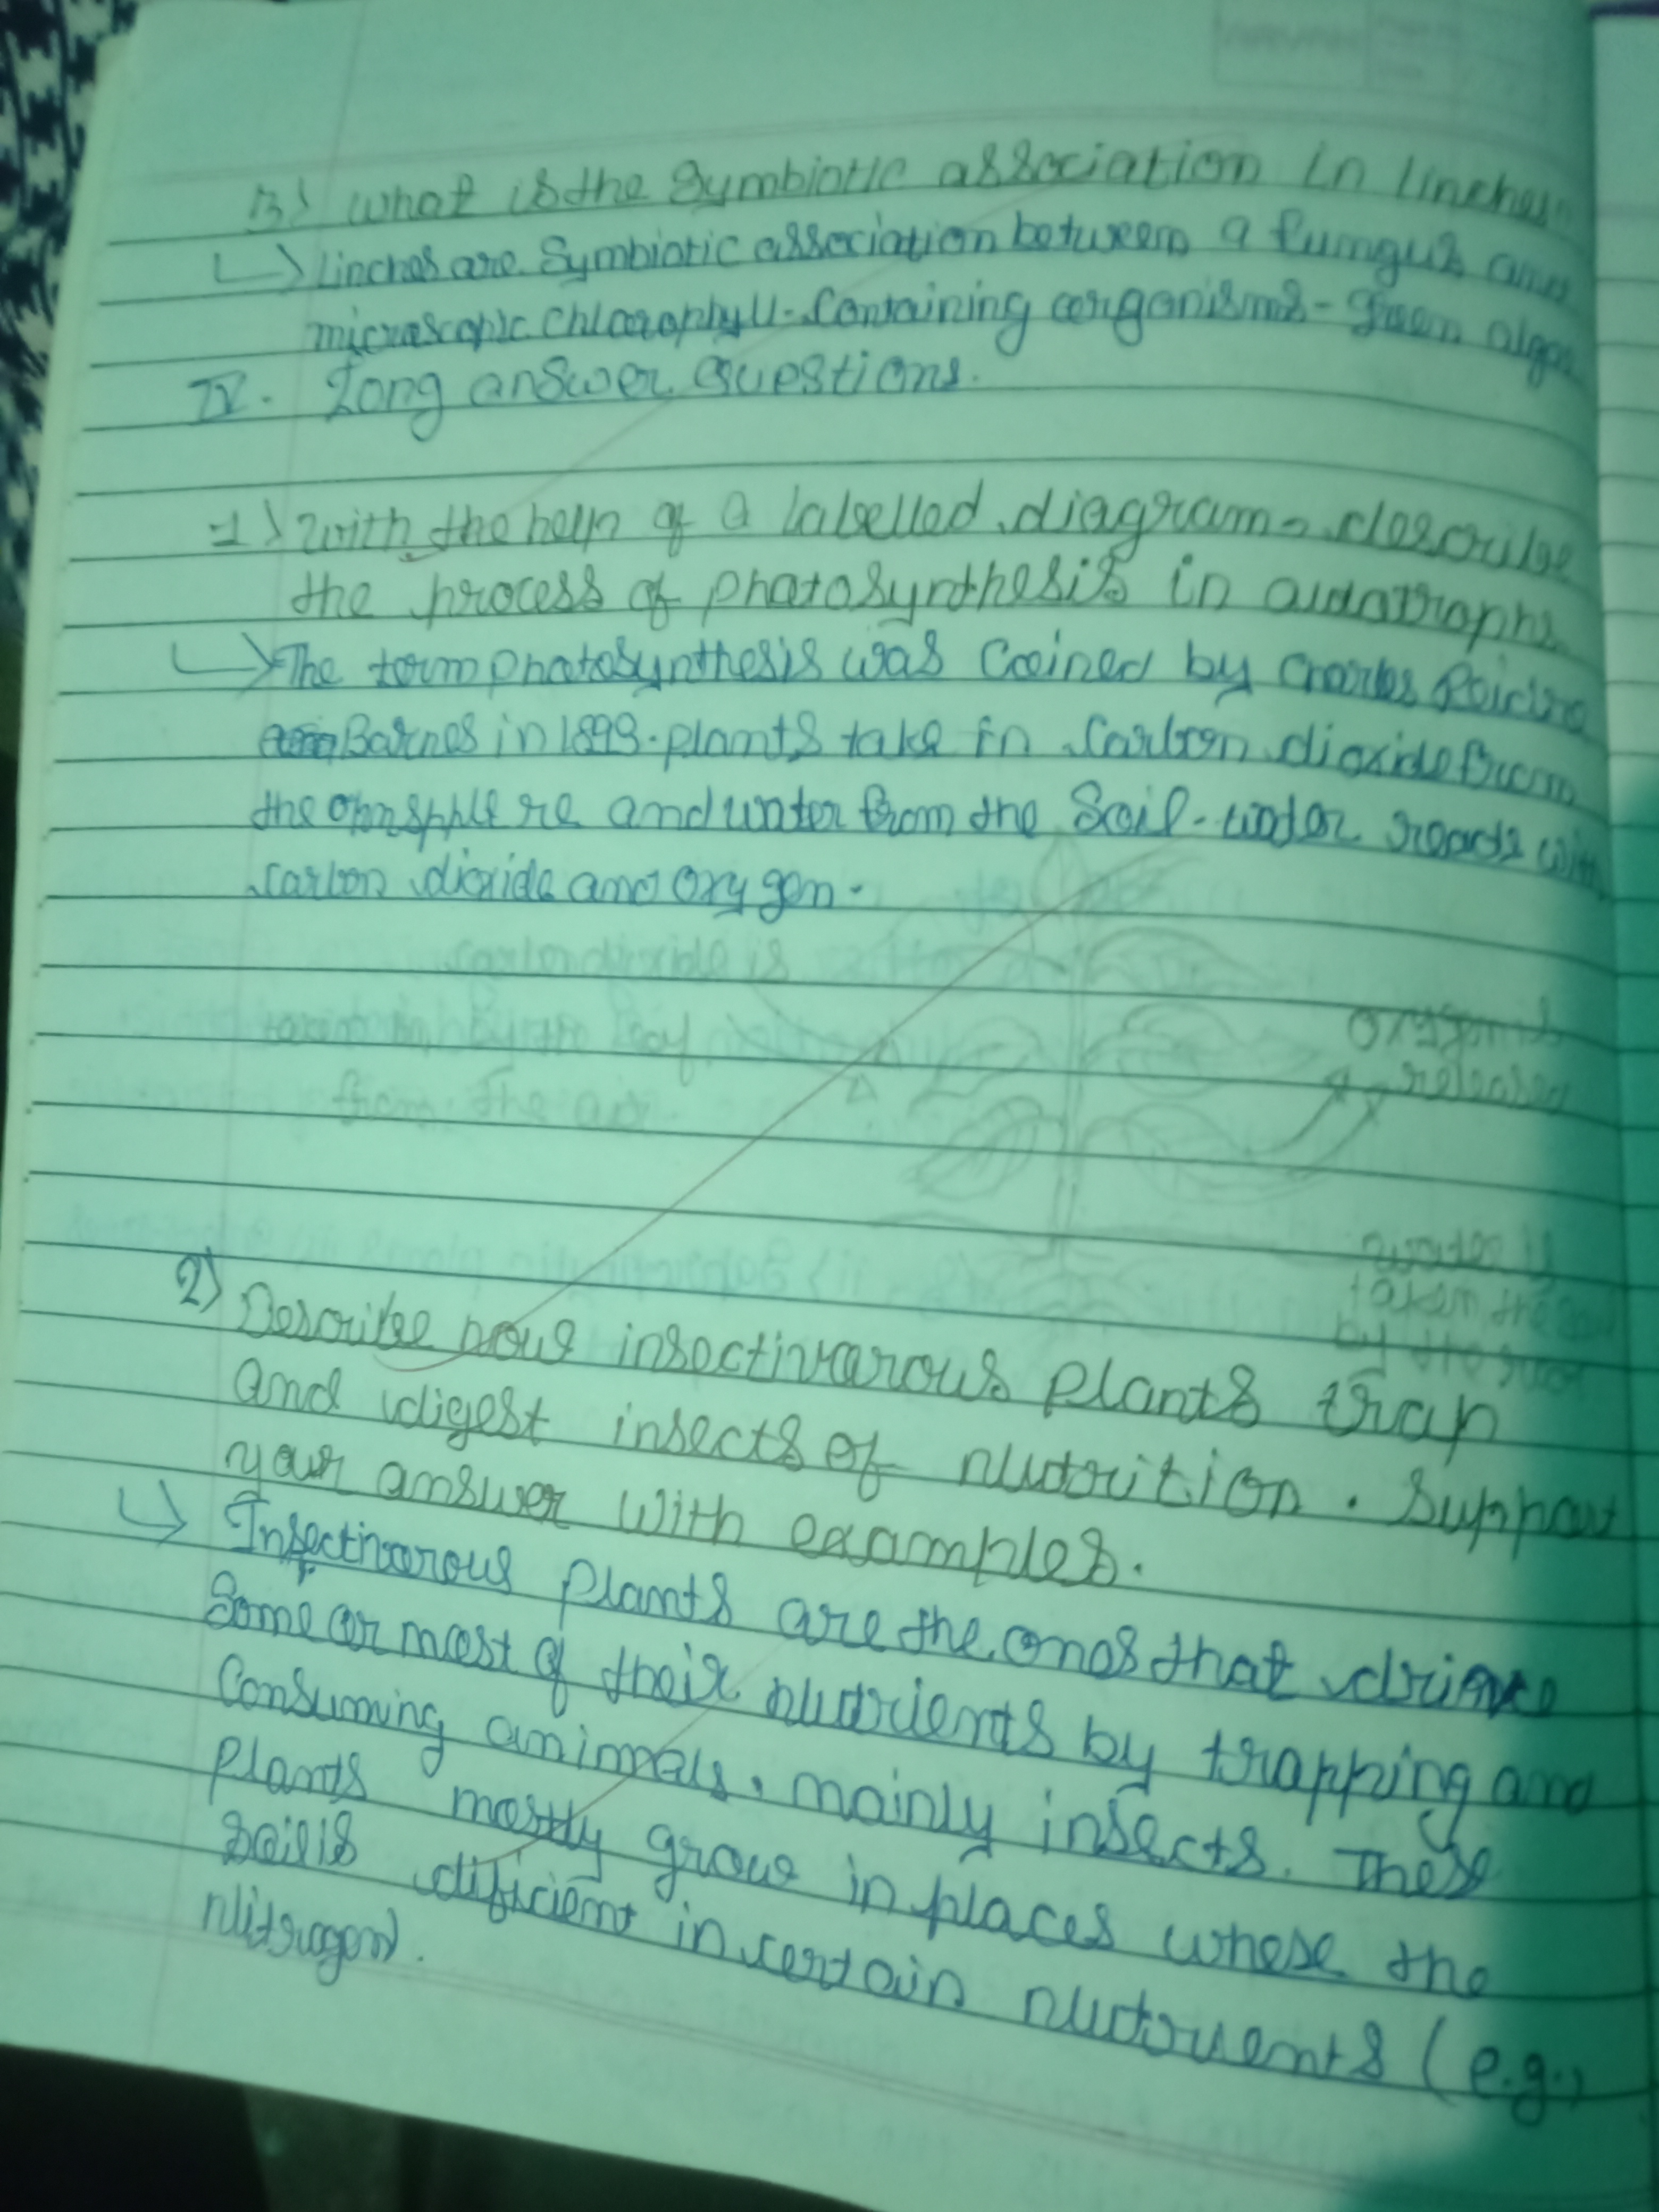 3) what is the Symbiotic association in linches
Linches are Symbiotic association between a fungus and
microscopic Chlorophyll-Containing organisms - green algae
IV. Long answer questions.
1) with the help of a labelled diagram, describe
the process of photosynthesis in autotrophs
The term photosynthesis was Coined by Charles
Barnes in 1893. plants take in Carbon dioxide from
the and water from the Soil. water reacts with
carbon dioxide and oxygen.
carbondioxide is
taken in by the leaf
from the air
oxygen is
released
water is
taken
by the
2) Describe how insectivorous plants trap
and digest insects of nutrition. Support
your answer with examples.
Insectivorous plants are the ones that drive
Some or most of their nutrients by trapping and
Consuming animals, mainly insects. These
plants mostly grow in places whose the
soil is dificient in certain nutrients (e.g.,
nitrogen).